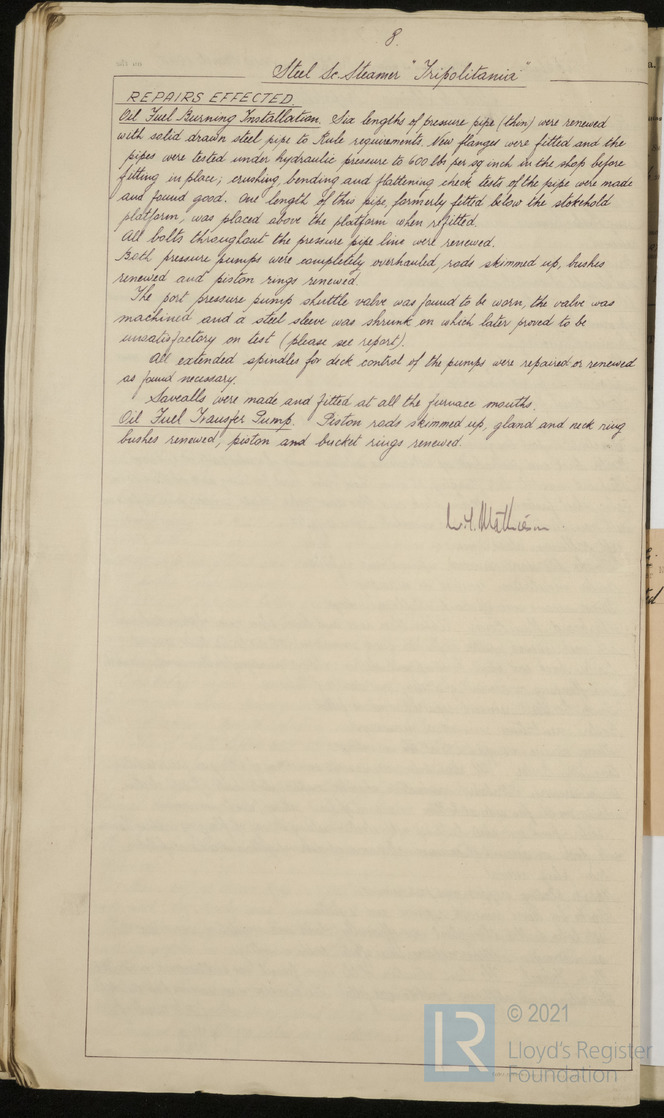 8.
Steel Sc. Steamer "Tripolitania"
REPAIRS EFFECTED
Oil Fuel Burning Installation. Six lengths of pressure pipe (thin) were renewed
with solid drawn steel pipe to Rule requirements. New flanges were fitted and the
pipes were tested under hydraulic pressure to 600 lbs per sq inch in the shop before
fitting in place; crushing, bending and flattening check tests of the pipe were made
and found good. One length of this pipe, formerly fitted below the stokehold
platform, was placed above the platform when refitted.
All bolts throughout the pressure pipe line were renewed.
Both pressure pumps were completely overhauled, rods skimmed up, bushes
renewed and piston rings renewed.
The port pressure pump shuttle valve was found to be worn, the valve was
machined and a steel sleeve was shrunk on which later proved to be
unsatisfactory on test (please see report).
All extended spindles for deck control of the pumps were repaired or renewed
as found necessary.
Savealls were made and fitted at all the furnace mouths.
Oil Fuel Transfer Pump. Piston rods skimmed up, gland and neck ring
bushes renewed, piston and bucket rings renewed.
LR
© 2021
Lloyd's Register
Foundation